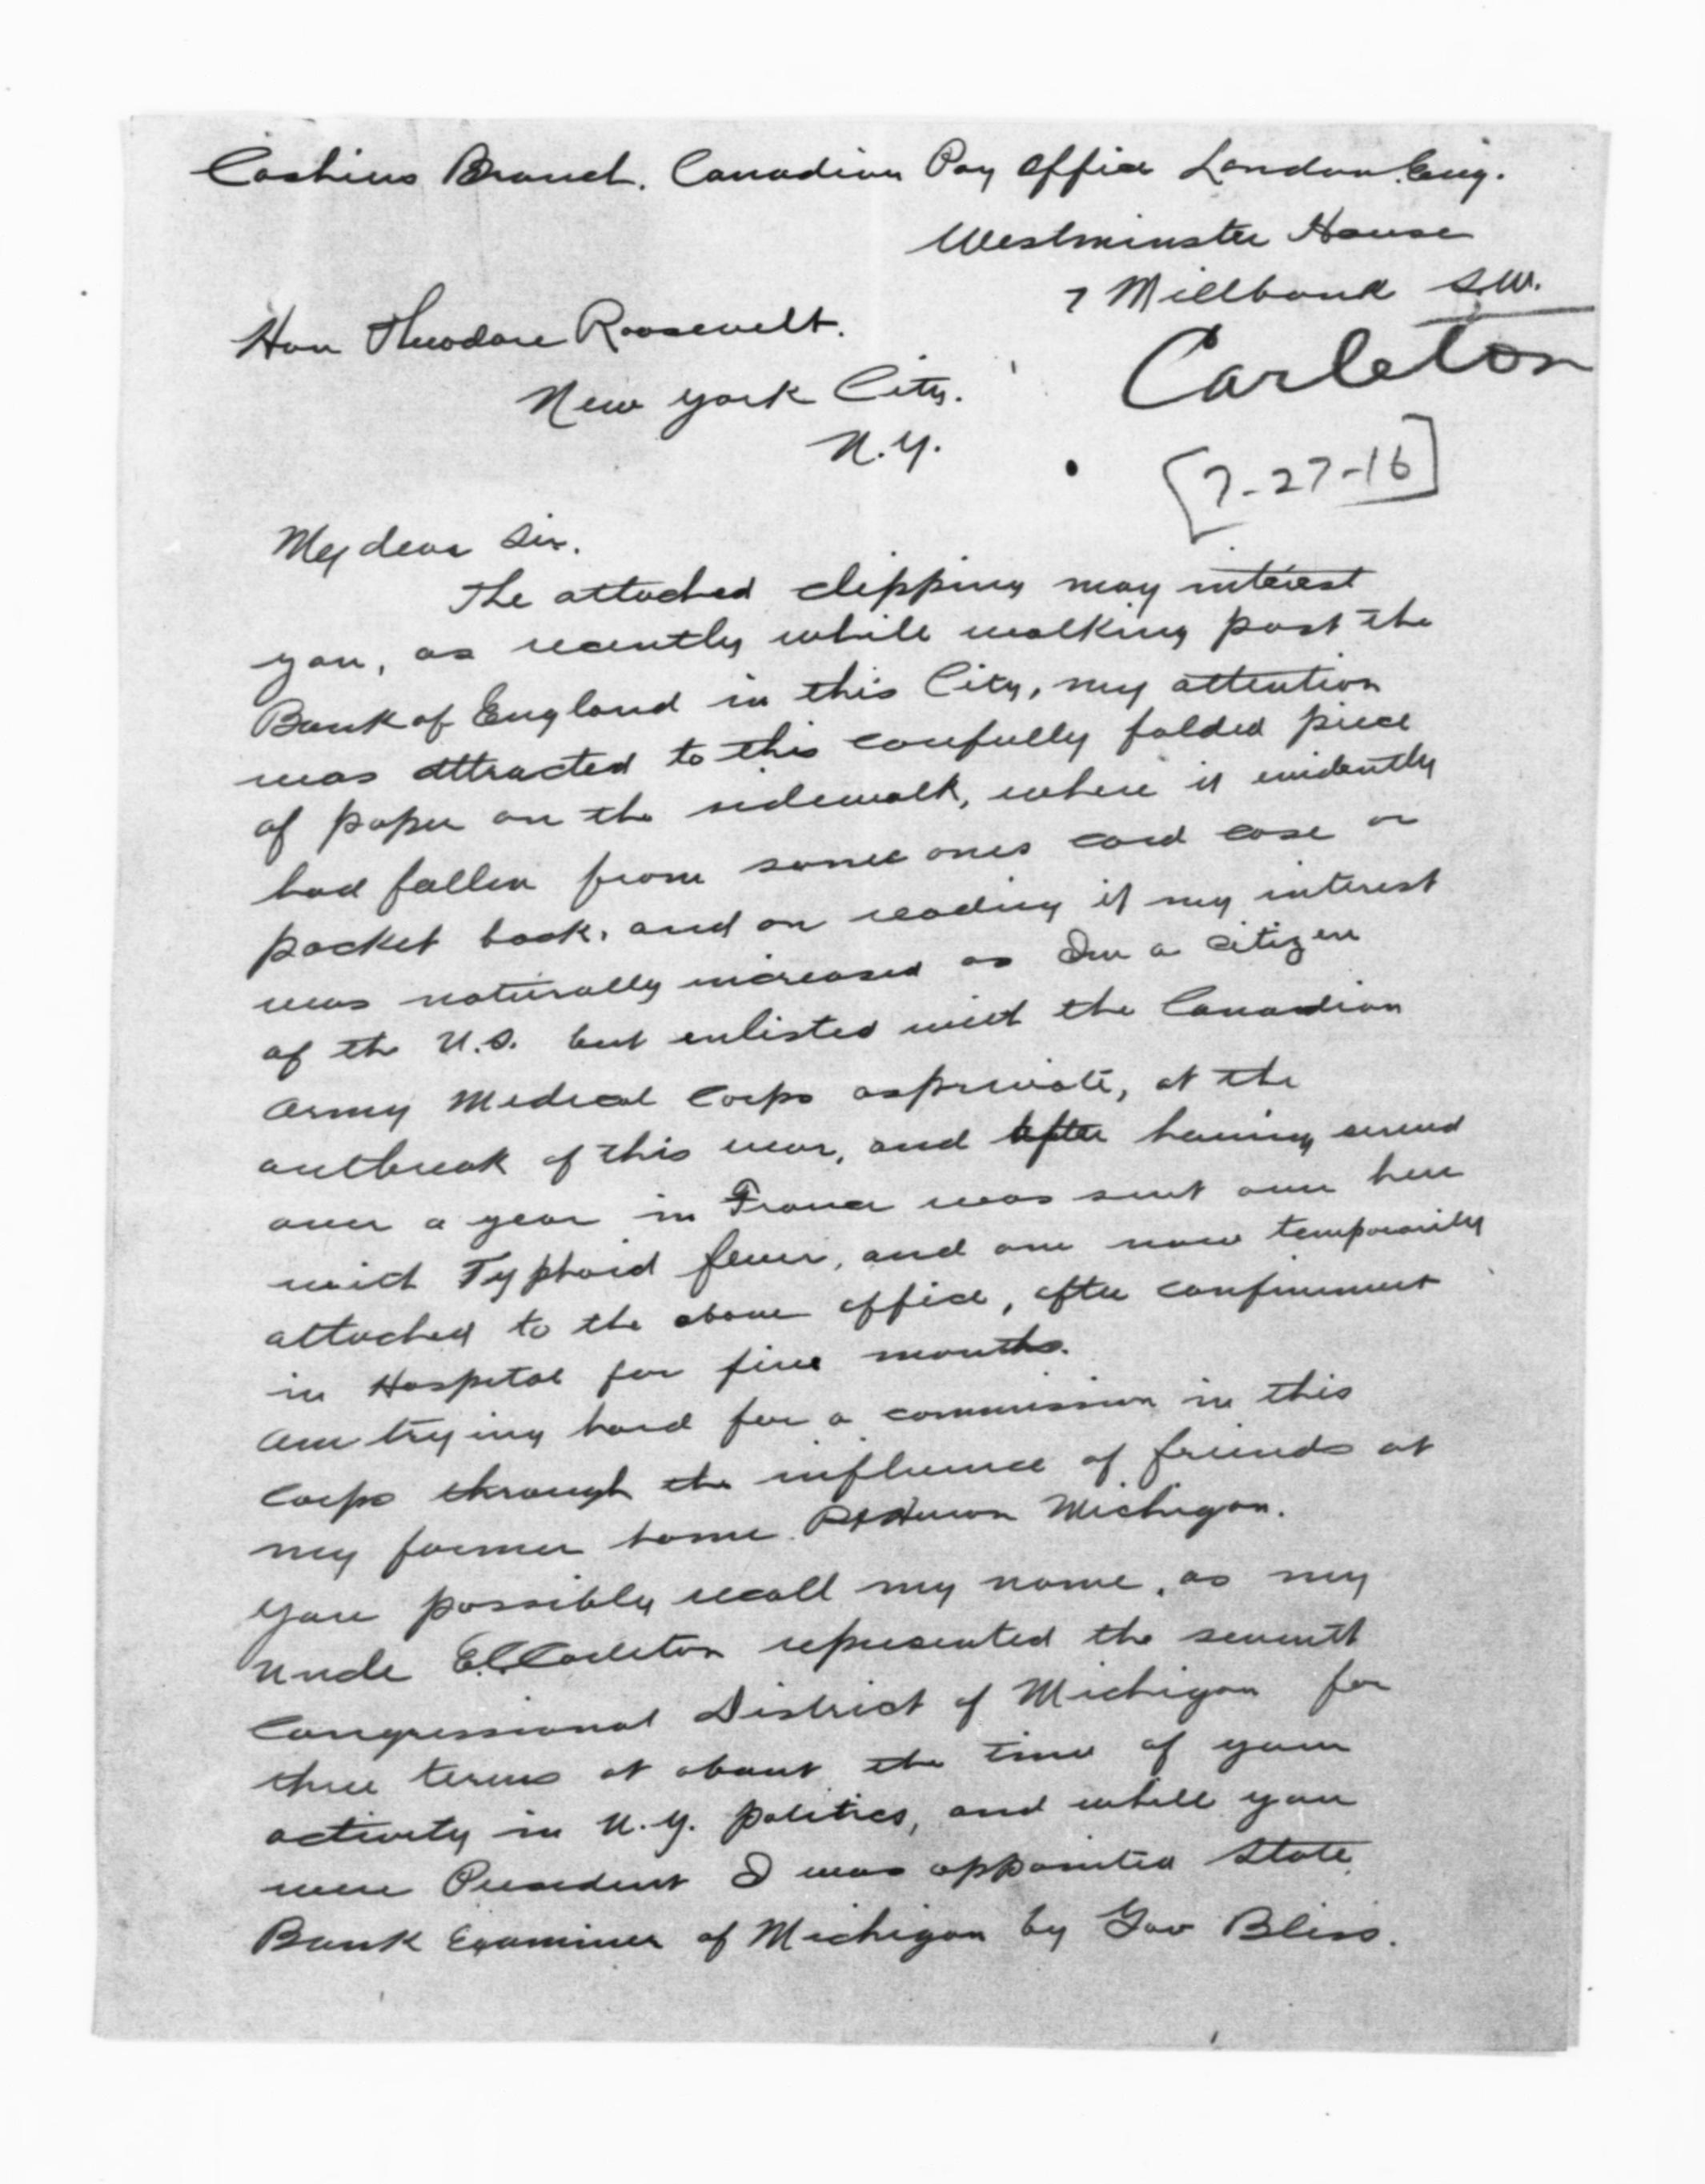 Cashiers Branch. Canadian Pay Office London. Eng.
Westminster House
7 Millbank S.W.
Hon Theodore Roosevelt.
Carleton
New York City.
N.Y.
[7-27-16]
My dear Sir.
The attached clipping may interest
you, as recently while walking past the
Bank of England in this City, my attention
was attracted to this carefully folded piece
of paper on the sidewalk, where it evidently
had fallen from some ones card case or
pocket book. and on reading it my interest
was naturally increased as I'm a citizen
of the U.S. but enlisted with the Canadian
Army Medical Corps as private, at the
outbreak of this war, and after having served
over a year in France was sent over here
with Typhoid fever, and am now temporarily
attached to the above office, after confinement
in Hospital for five months.
Am trying hard for a commission in this
Corps through the influence of friends at
my former home Pt Huron Michigan.
You possibly recall my name, as my
Uncle E.C. Carleton represented the seventh
Congressional District of Michigan for
three terms at about the time of your
activity in N.Y. politics, and while you
were President I was appointed State
Bank Examiner of Michigan by Gov Bliss.